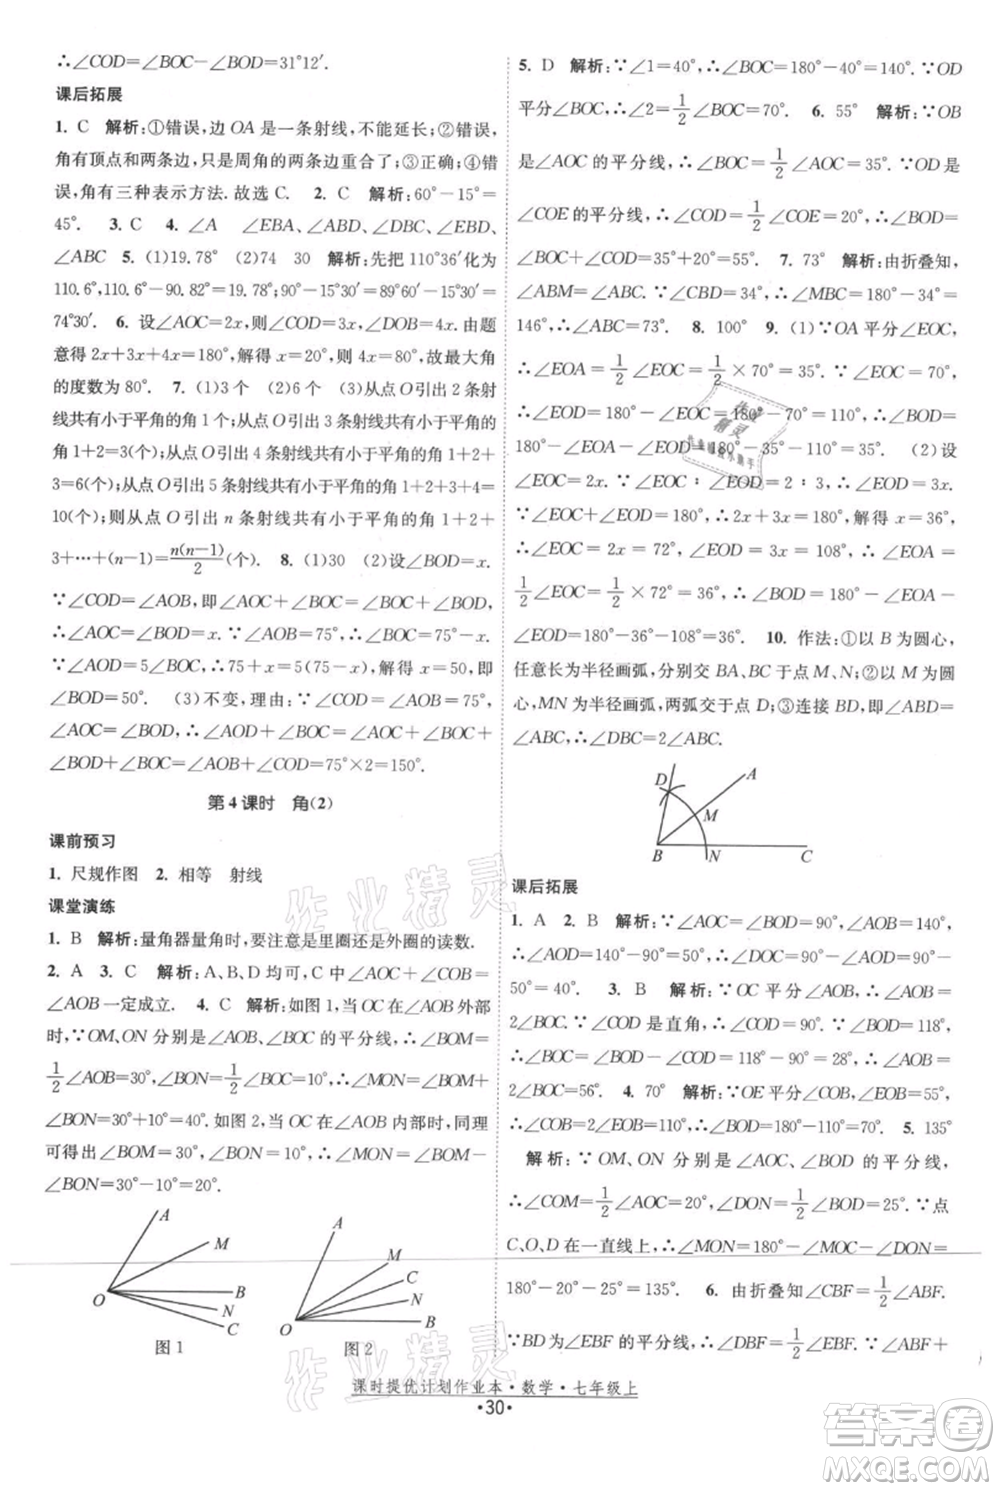 ∴∠COD=∠BOC−∠BOD=31°12′.
课后拓展
1. C 解析:①错误,边 OA 是一条射线,不能延长;②错误,
角有顶点和两条边,只是周角的两条边重合了;③正确;④错
误,角有三种表示方法.故选 C. 2. C 解析:60°−15°=
45°. 3. C 4. ∠A ∠EBA, ∠ABD, ∠CBE, ∠EBD,
∠ABC 5. (1)19.78° (2)74 30 解析:先把 110°36′化为
110.6°,110.6°−90.48°÷3=110.6°−30.16°=80.44°;90°−15°30′=
74°30′. 6. 设∠AOC=2x,则∠COD=3x,∠DOB=4x.由题
意得 2x+3x+4x=180°,解得 x=20°,则 4x=80°,故最大角
的度数为 80°. 7. (1)3 个 (2)6 个 (3)从点 O 引出 2 条射
线共有小于平角的角 1 个;从点 O 引出 3 条射线共有小于平角的角
1+2=3(个);从点 O 引出 4 条射线共有小于平角的角 1+2+
3=6(个);从点 O 引出 5 条射线共有小于平角的角 1+2+3+4=
10(个);则从点 O 引出 n 条射线共有小于平角的角 1+2+
3+…+(n−1)=n(n−1)/2(个). 8. (1)30 (2)设∠BOD=x.
∵∠COD=∠AOB,即∠AOC+∠BOC=∠BOC+∠BOD,
∴∠AOC=∠BOD=x.∵∠AOB=75°,∴∠BOC=75°−x.
∵∠AOD=5∠BOC,∴75°+x=5(75°−x),解得 x=50°,即
∠BOD=50°. (3)不变,理由:∵∠COD=∠AOB=75°,
∠AOC=∠BOD,∴∠AOD+∠BOC=∠AOB+∠BOD+
∠BOC=∠AOB+∠COD=75°×2=150°.
第 4 课时 角(2)
课前预习
1. 尺规作图 2. 相等 射线
课堂演练
1. B 解析:量角器量角时,要注意是里圈还是外圈的读数.
2. A 3. C 解析:A、B、D 均可,C 选项∠AOC+∠COB=
∠AOB 一定成立. 4. C 解析:如图 1,当 OC 在∠AOB 外部
时,∵OM,ON 分别是∠AOB,∠BOC 的平分线,∴∠BOM=
1/2∠AOB=30°,∠BON=1/2∠BOC=10°,∴∠MON=∠BOM+
∠BON=30°+10°=40°.如图 2,当 OC 在∠AOB 内部时,
∵OM,ON 分别是∠AOB,∠BOC 的平分线,∴∠BOM=
1/2∠AOB=30°,∠BON=1/2∠BOC=10°,∴∠MON=∠BOM−
∠BON=30°−10°=20°.
A
M
O
B
N
C
图 1
A
M
C
N
O
B
图 2
5. D 解析:∵∠1=40°,∴∠BOC=180°−40°=140°.∵OD
平分∠BOC,∴∠2=1/2∠BOC=70°. 6. 55° 解析:∵OB
是∠AOC 的平分线,∴∠BOC=1/2∠AOC=35°.∵OD 是
∠COE 的平分线,∴∠COD=1/2∠COE=20°,∴∠BOD=
∠BOC+∠COD=35°+20°=55°. 7. 73° 解析:由折叠知,
∠ABM=∠MBC.∵∠CBD=34°,∴∠MBC=180°−34°=
146°,∴∠ABC=73°. 8. 100° 9. (1)∵OA 平分∠EOC,
∴∠EOA=1/2∠EOC=1/2×70°=35°.∵∠EOC=70°,
∴∠DOE=180°−∠EOC=180°−70°=110°.∴∠BOD=
180°−∠EOA−∠EOD=180°−35°−110°=35°. (2)设
∠EOC=2x.∵∠EOC∶∠EOD=2∶3,∴∠EOD=3x.
∵∠EOD+∠EOC=180°,∴2x+3x=180°,解得 x=36°,
∴∠EOC=2x=72°,∠EOD=3x=108°,∴∠EOA=
1/2∠EOC=1/2×72°=36°,∴∠BOD=180°−∠EOA−
∠EOD=180°−36°−108°=36°. 10. 作法:①以 B 为圆心,
任意长为半径画弧,分别交 BA、BC 于点 M、N;②以 M 为圆
心,MN 为半径画弧,两弧交于点 D;③连接 BD,即∠ABD=
∠ABC,∴∠DBC=2∠ABC.
D
A
M
B
N
C
课后拓展
1. A 2. B 解析:∵∠AOC=∠BOD=90°,∠AOB=140°,
∴∠AOD=∠AOB−∠BOD=50°,∴∠DOC=∠AOC−∠AOD=90°−
50°=40°. 3. B 解析:∵OC 平分∠AOB,∴∠AOB=
2∠BOC.∵∠COD 是直角,∴∠COD=90°.∵∠BOD=118°,
∴∠BOC=∠BOD−∠COD=118°−90°=28°,∴∠AOB=
2∠BOC=56°. 4. 70° 解析:∵OE 平分∠COB,∠EOB=
55°,∴∠COB=110°,∴∠BOD=180°−110°=70°. 5. 135°
解析:∵OM、ON 分别是∠AOC、∠BOD 的平分线,
∴∠COM=1/2∠AOC=20°,∠DON=1/2∠BOD=25°.∵点
C、O、D 在一直线上,∴∠MON=180°−∠MOC−∠DON=
180°−20°−25°=135°. 6. 由折叠知∠CBF=1/2∠ABF.
∵BD 为∠EBF 的平分线,∴∠DBF=1/2∠EBF.∵∠ABF+
课时提优计划作业本·数学·七年级上
·30·
作业精灵
作业精灵
作业精灵
答案圈
MXQE.COM